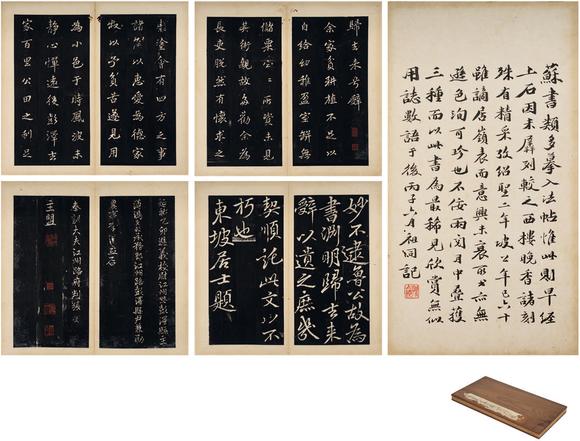 歸去來兮辭
余家貧耕植不足以
自給幼稚盈室缾無
儲粟生生所資未見
其術親故多勸余為
長吏脫然有懷求之
靡途會有四方之事
諸侯以惠愛為德家
叔以余貧苦遂見用
為小邑于時風波未
靜心憚遠役彭澤去
家百里公田之利足
妙不逮魯公故為
書淵明歸去來
辭以遺之庶幾
契順託此文以不
朽也
東坡居士題
奉訓大夫江州路府判
主盟
蘇書類多摹入法帖惟此則早經
上石因未羼列較之西樓晚香諸刻
殊有精采攷紹聖二年坡公年已六十
雖謫居嶺表而意興未衰所書亦無
遜色洵可珍也不佞兩閱月中疊獲
三種而以此書為最稀見欣賞無似
用誌數語于後丙子六月祖同記